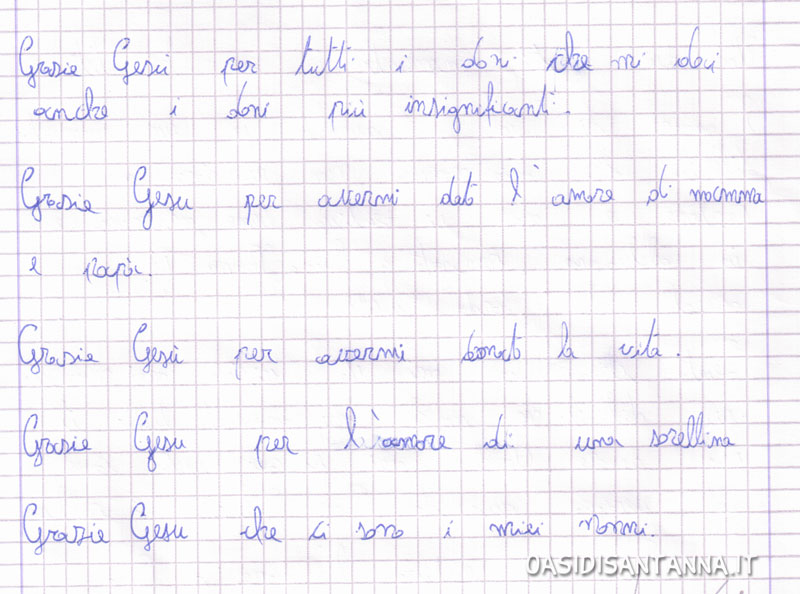 Grazie Gesù per tutti i doni che mi dai
anche i doni più insignificanti.
Grazie Gesu per avermi dato l'amore di mamma
e papà.
Grazie Gesù per avermi donato la vita.
Grazie Gesu per l'amore di una sorellina
Grazie Gesu che ci sono i miei nonni.
OASIDISANTANNA.IT